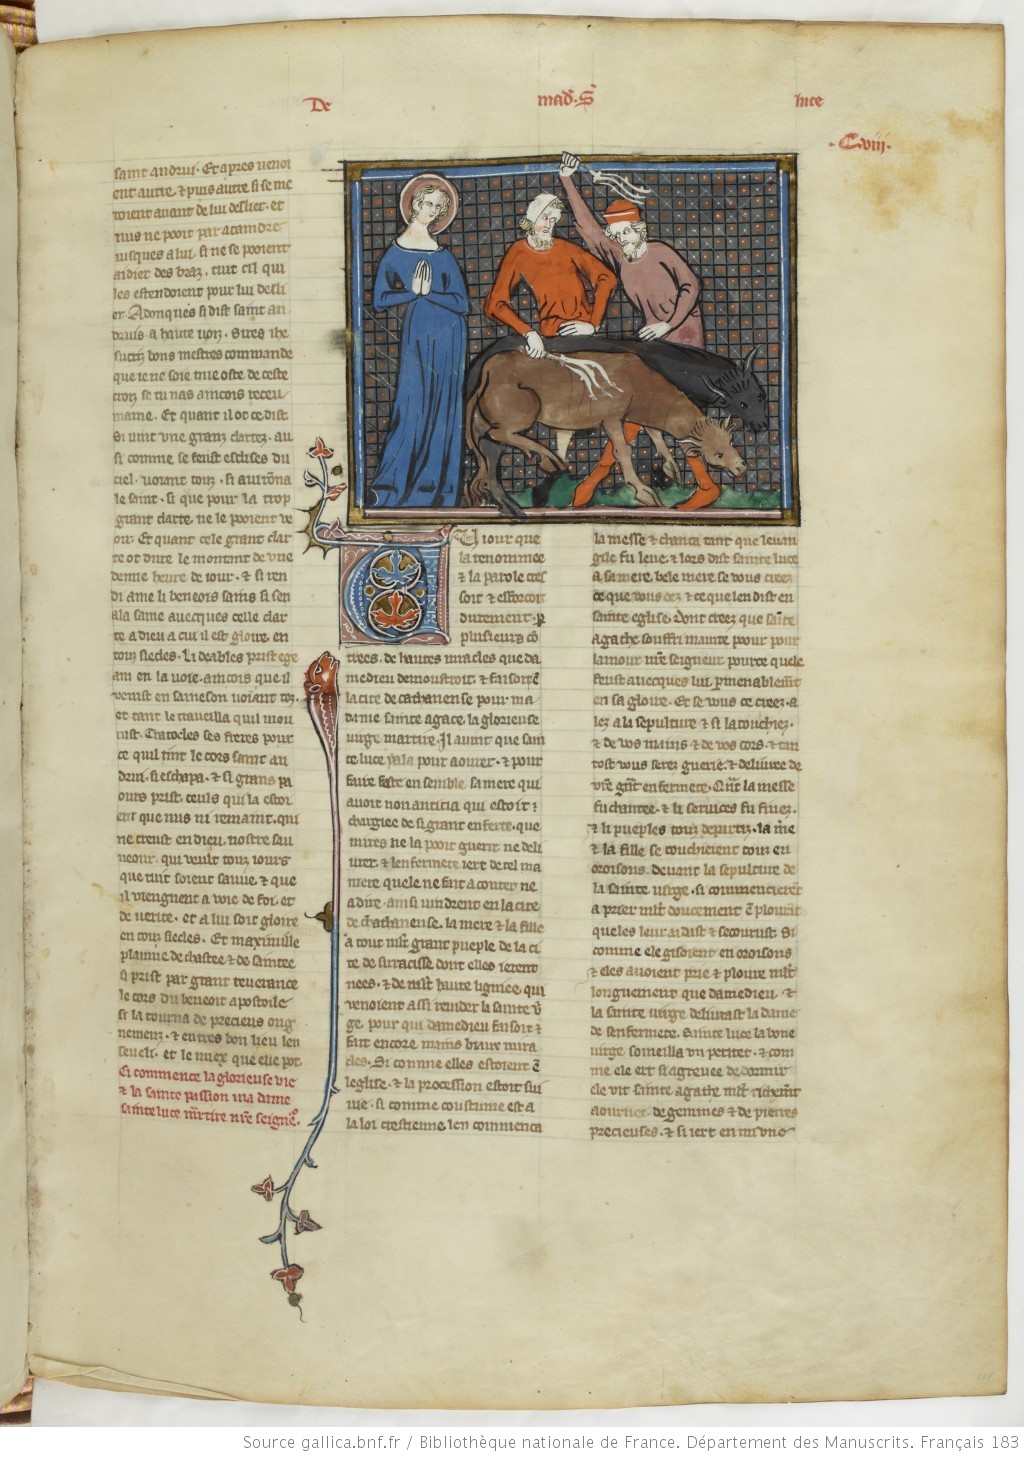 De
mad. S.
luce
.C.viii.
saint andrui. Et apres venoi
ent autre, & puis autre si se me
toient avant de lui deslier. et
nus ne pooit par ataindre
iusques a lui. si ne se pooient
aidier des braz. tuit cil qui
les estendoient pour lui desli
er. Adonques si dist saint an
druis a haute uoiz. Sires ihe
sucriz bons mestres commande
que ie ne soie mie oste de ceste
croiz se tu nas aincois receu
marne. Et quant il ot ce dist.
Si uint une granz clartez. au
si comme se feust esclises du
ciel. uoiant touz. si auirona
le saint. si que pour la trop
grant clarte. ne le pooient ve
oir. Et quant cele grant clar
te ot dure le montant de une
demie heure de iour. & si ren
di ame li beneois sains si sen
ala same avecques celle clar
te a dieu a cui il est gloire. en
touz siecles. Li deables prist ege
am en la uoie. aincois que il
venist en sameson uoiant toz.
et tant le travilla quil mou
rut. Cratocles ses freres pour
ce quil tint le cors saint an
drui. si eschapa. & si grans pa
ours prist. ceuls qui la estoi
ent que nus ni remaint. qui
ne creust en dieu. nostre sau
ueour. qui veult touz iours
que tuit soient sauue. & que
il viengnent a voie de foi. et
de uerite. et a lui soit gloire
en touz siecles. Et maximille
plainne de chastee & de saintee
si prist par grant reuerance
le cors du benoit apostoile
si la tourna de precieus oing
nemenz. & en tres bon lieu len
seueli. et le miex que elle pot.
Ci commence la glorieuse vie
& la sainte passion ma dame
sainte luce martire nre seigneor.
U iour que
la renommee
& la parole cres
soit & efforcoit
durement. p
plusieurs co
trees. de hautes miracles que da
medieu demoustroit. & faisoit en
la cite de cathanense pour ma
dame sainte agace. la glorieuse
uirge martire. Il avint que sain
te luce i ala pour aourer. & pour
faire faste en semble. sa mere qui
auoit non anticia qui estoit
chargiee de si grant enferte. que
mires ne la pooit guerir ne deli
urer. & lenfermete iert de tel ma
niere quele ne fait a conter ne
a dire. ainsi uindrent en la cite
de chathanense. la mere & la fille
a tout mlt grant pueple de la ci
te de sirracusse dont elles ierent
nees. & de mlt haute lignice. qui
venoient assi reuider la sainte vir
ge. pour qui damedieu faisoit &
fait encore mains biaux mira
cles. Si comme elles estoient en
leglise. & la procession estoit sui
uie. si comme coustume est a
la loi crestienne. len commenca
la messe & chanta tant que leuan
gile fu leue. & lors dist sainte luce
a sa mere. bele mere se vous creez
ce que vous oez. & ce que len dist en
sainte eglise. Dont creez que sainte
agathe souffri mainte poour pour
lamour nre seigneur. pource quele
feust auecques lui parmenablement
en sa gloire. Et se vous ce creez. a
lez a la sepulture & si la touchiez.
& de vos mains & de vos cors. & tan
tost vous serez guerie. & deliuree de
vre grant enfermete. Quant la messe
fu chantee. & li seruices fu finez.
& li pueples touz departiz. la mere
& la fille se couchierent touz en
oroisons. deuant la sepulture de
la sainte uirge. si commencierent
a prier mlt doucement en plourant
que les leur aidast & secourust. Si
comme ele gisoient en oroisons
& eles auoient prie & ploure mlt
longuement que damedieu. &
la sainte uirge deliurast la dame
de senfermete. Sainte luce la bone
uirge someilla un petitet. & com
me ele ert si agreuee de dormir
ele vit sainte agathe mlt richement
aournee. de gemmes & de pierres
precieuses. & si iert en mi une
Source gallica.bnf.fr / Bibliothèque nationale de France. Département des Manuscrits. Français 183